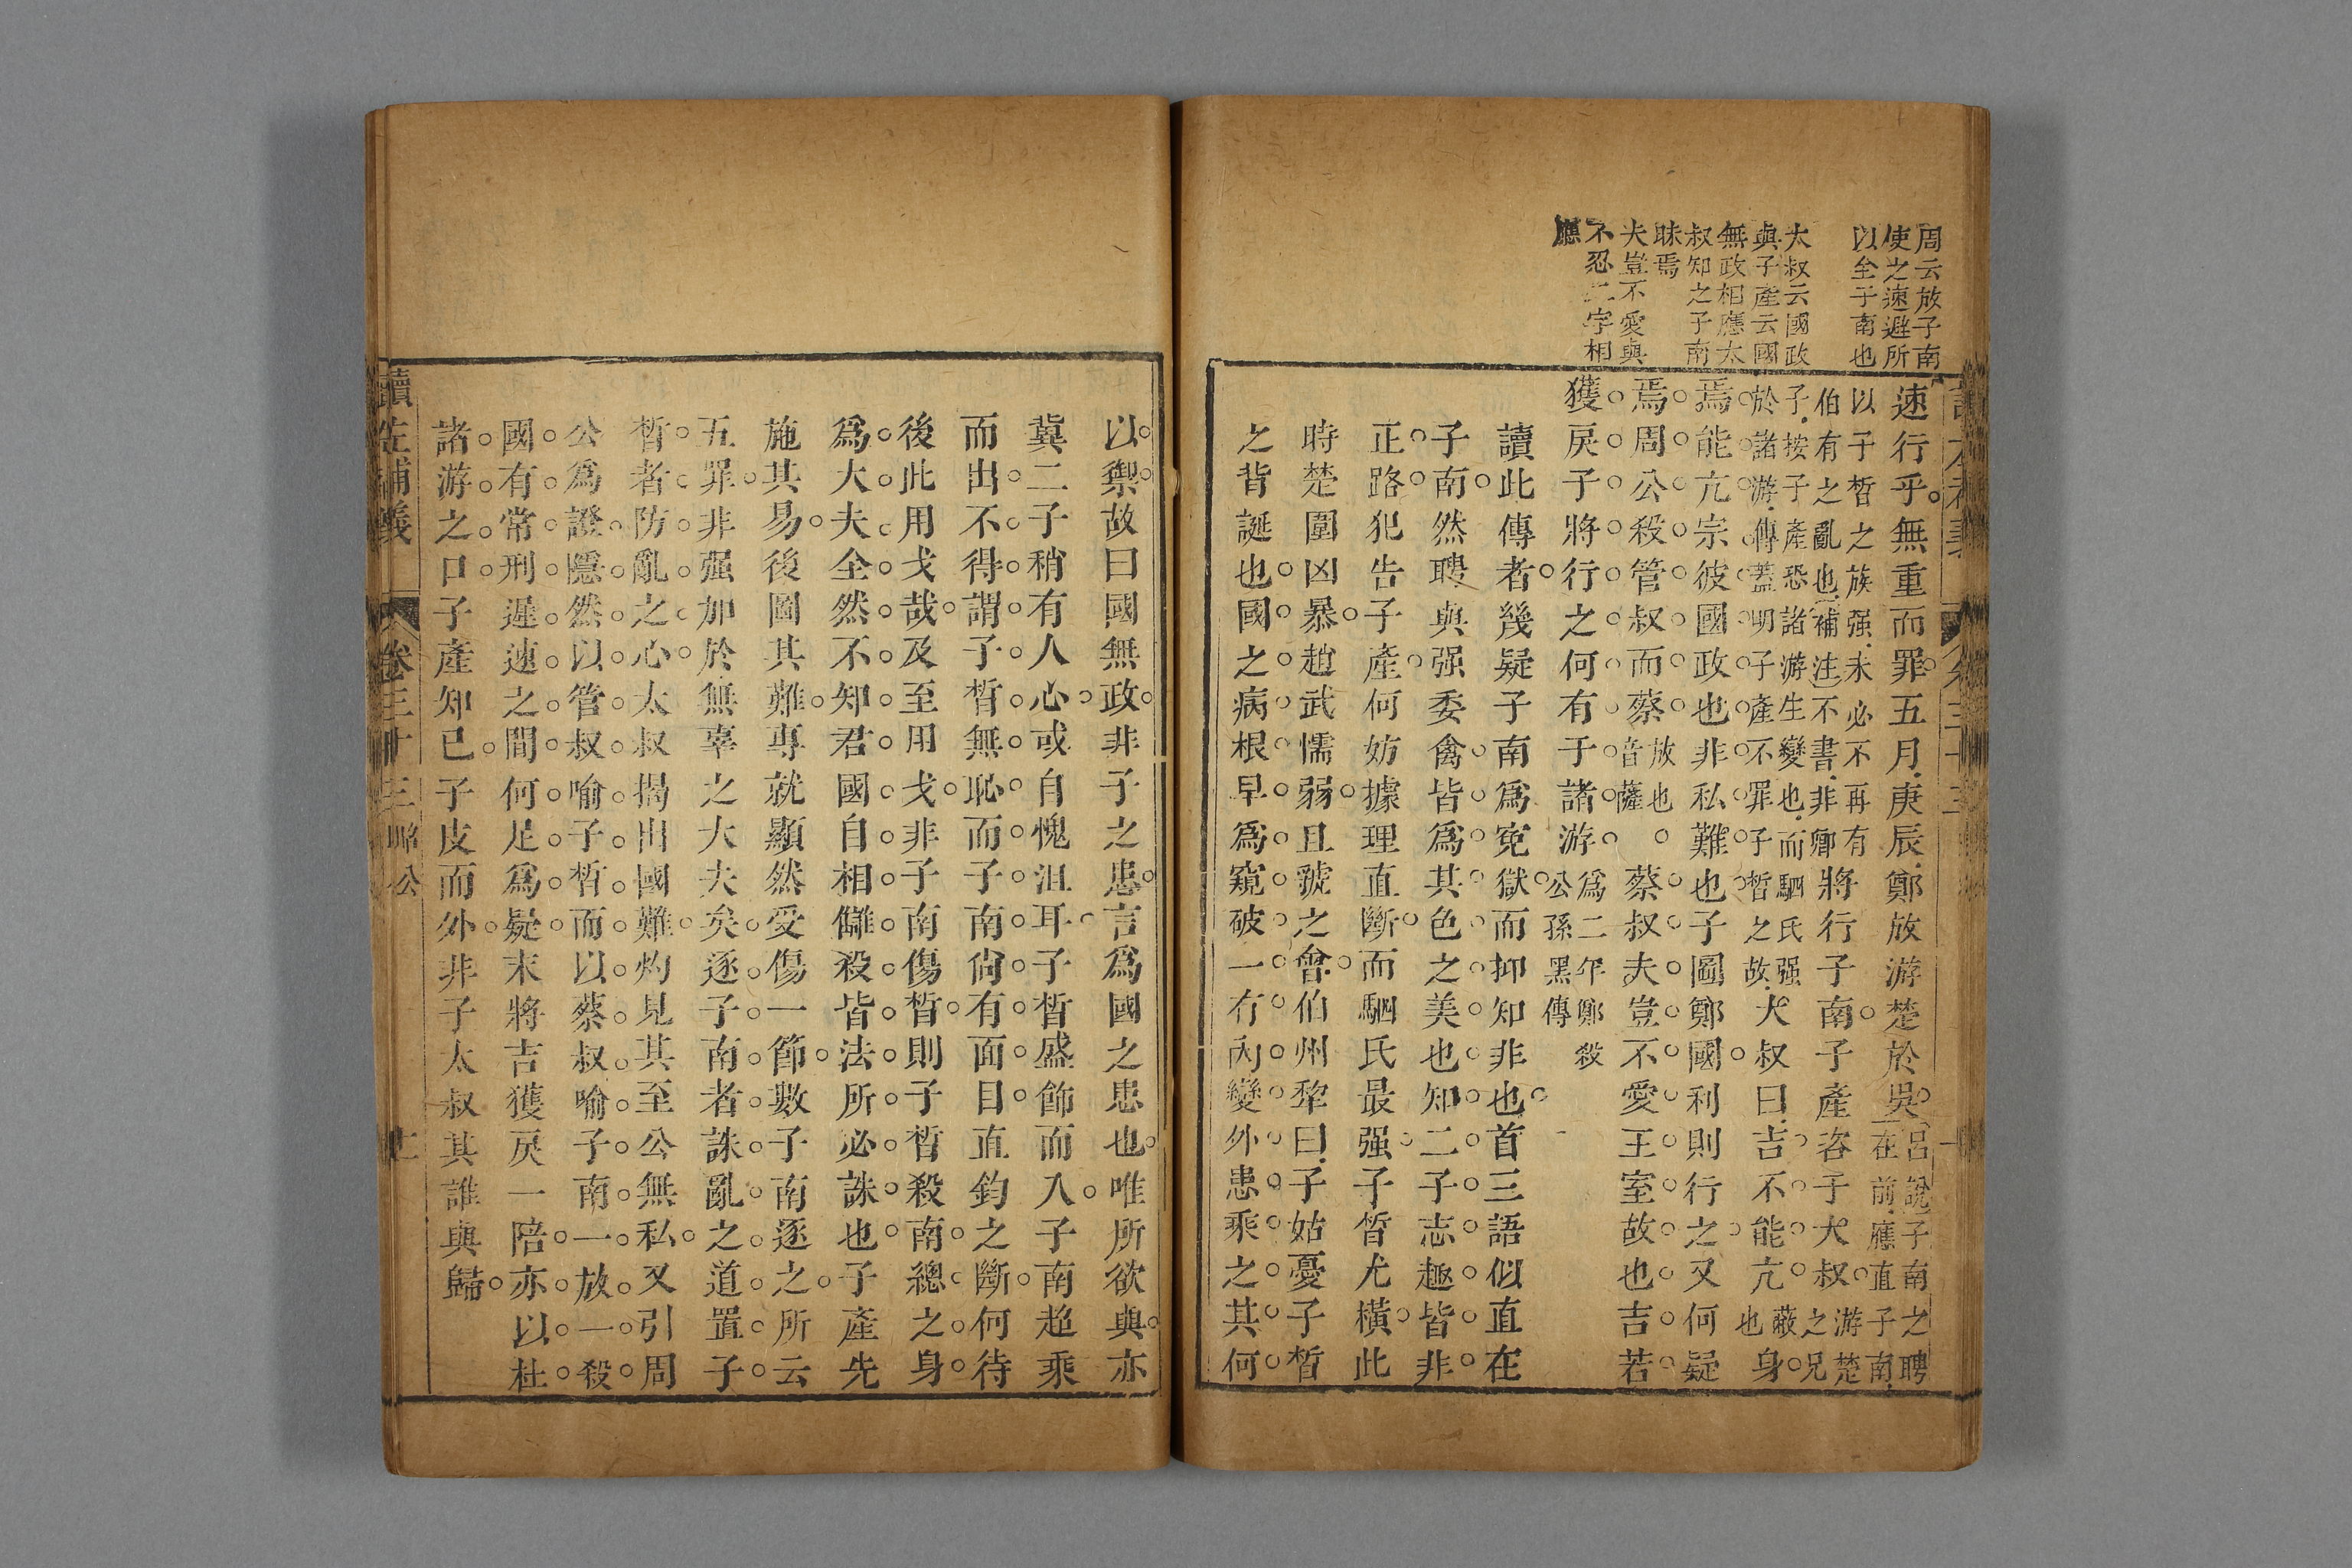 周云放子南
使之速避所
以全子南也
太叔云國政
與子產云國
無政相應太
叔知之子南
昧焉
夫豈不愛與
不忍二字相
應
速行乎無重而罪五月庚辰鄭放游楚於吳呂說子南之聘
在前應直子南
以子皙之族强未必不再有
伯有之亂也補注不書非卿將行子南子產咨于大叔游楚
之兄
子按子產恐諸游生變也而駟氏强
於諸游傳蓋明子產不罪子皙之故大叔曰吉不能亢蔽
也身
焉能亢宗彼國政也非私難也子圖鄭國利則行之又何疑
焉周公殺管叔而蔡放也
音薩蔡叔夫豈不愛王室故也吉若
獲戾子將行之何有于諸游爲二年鄭殺
公孫黑傳
讀此傳者幾疑子南爲寃獄而抑知非也首三語似直在
子南然聘與强委禽皆爲其色之美也知二子志趣皆非
正路犯告子產何妨據理直斷而駟氏最强子皙尤橫此
時楚圍凶暴趙武懦弱且虢之會伯州犂曰子姑憂子皙
之背誕也國之病根早爲窺破一有內變外患乘之其何
以禦故曰國無政非子之患言爲國之患也唯所欲與亦
冀二子稍有人心或自愧沮耳子皙盛飾而入子南超乘
而出不得謂子皙無恥而子南尙有面目直鈞之斷何待
後此用戈哉及至用戈非子南傷皙則子皙殺南總之身
爲大夫全然不知君國自相讎殺皆法所必誅也子產先
施其易後圖其難專就顯然受傷一節數子南逐之所云
五罪非强加於無辜之大夫矣逐子南者誅亂之道置子
皙者防亂之心太叔揭出國難灼見其至公無私又引周
公爲證隱然以管叔喻子皙而以蔡叔喻子南一放一殺
國有常刑遲速之間何足爲疑末將吉獲戾一陪亦以杜
諸游之口子產知已子皮而外非子太叔其誰與歸
讀左補義 卷三十三 昭公